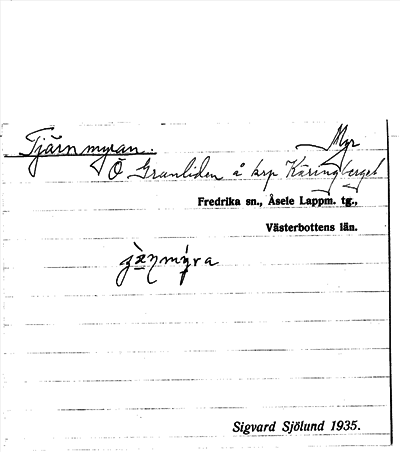 Tjärnmyran. Myr
Ö Granliden å krp Käringberget
Fredrika sn., Åsele Lappm. tg.,
Västerbottens län.
Sigvard Sjölund 1935.